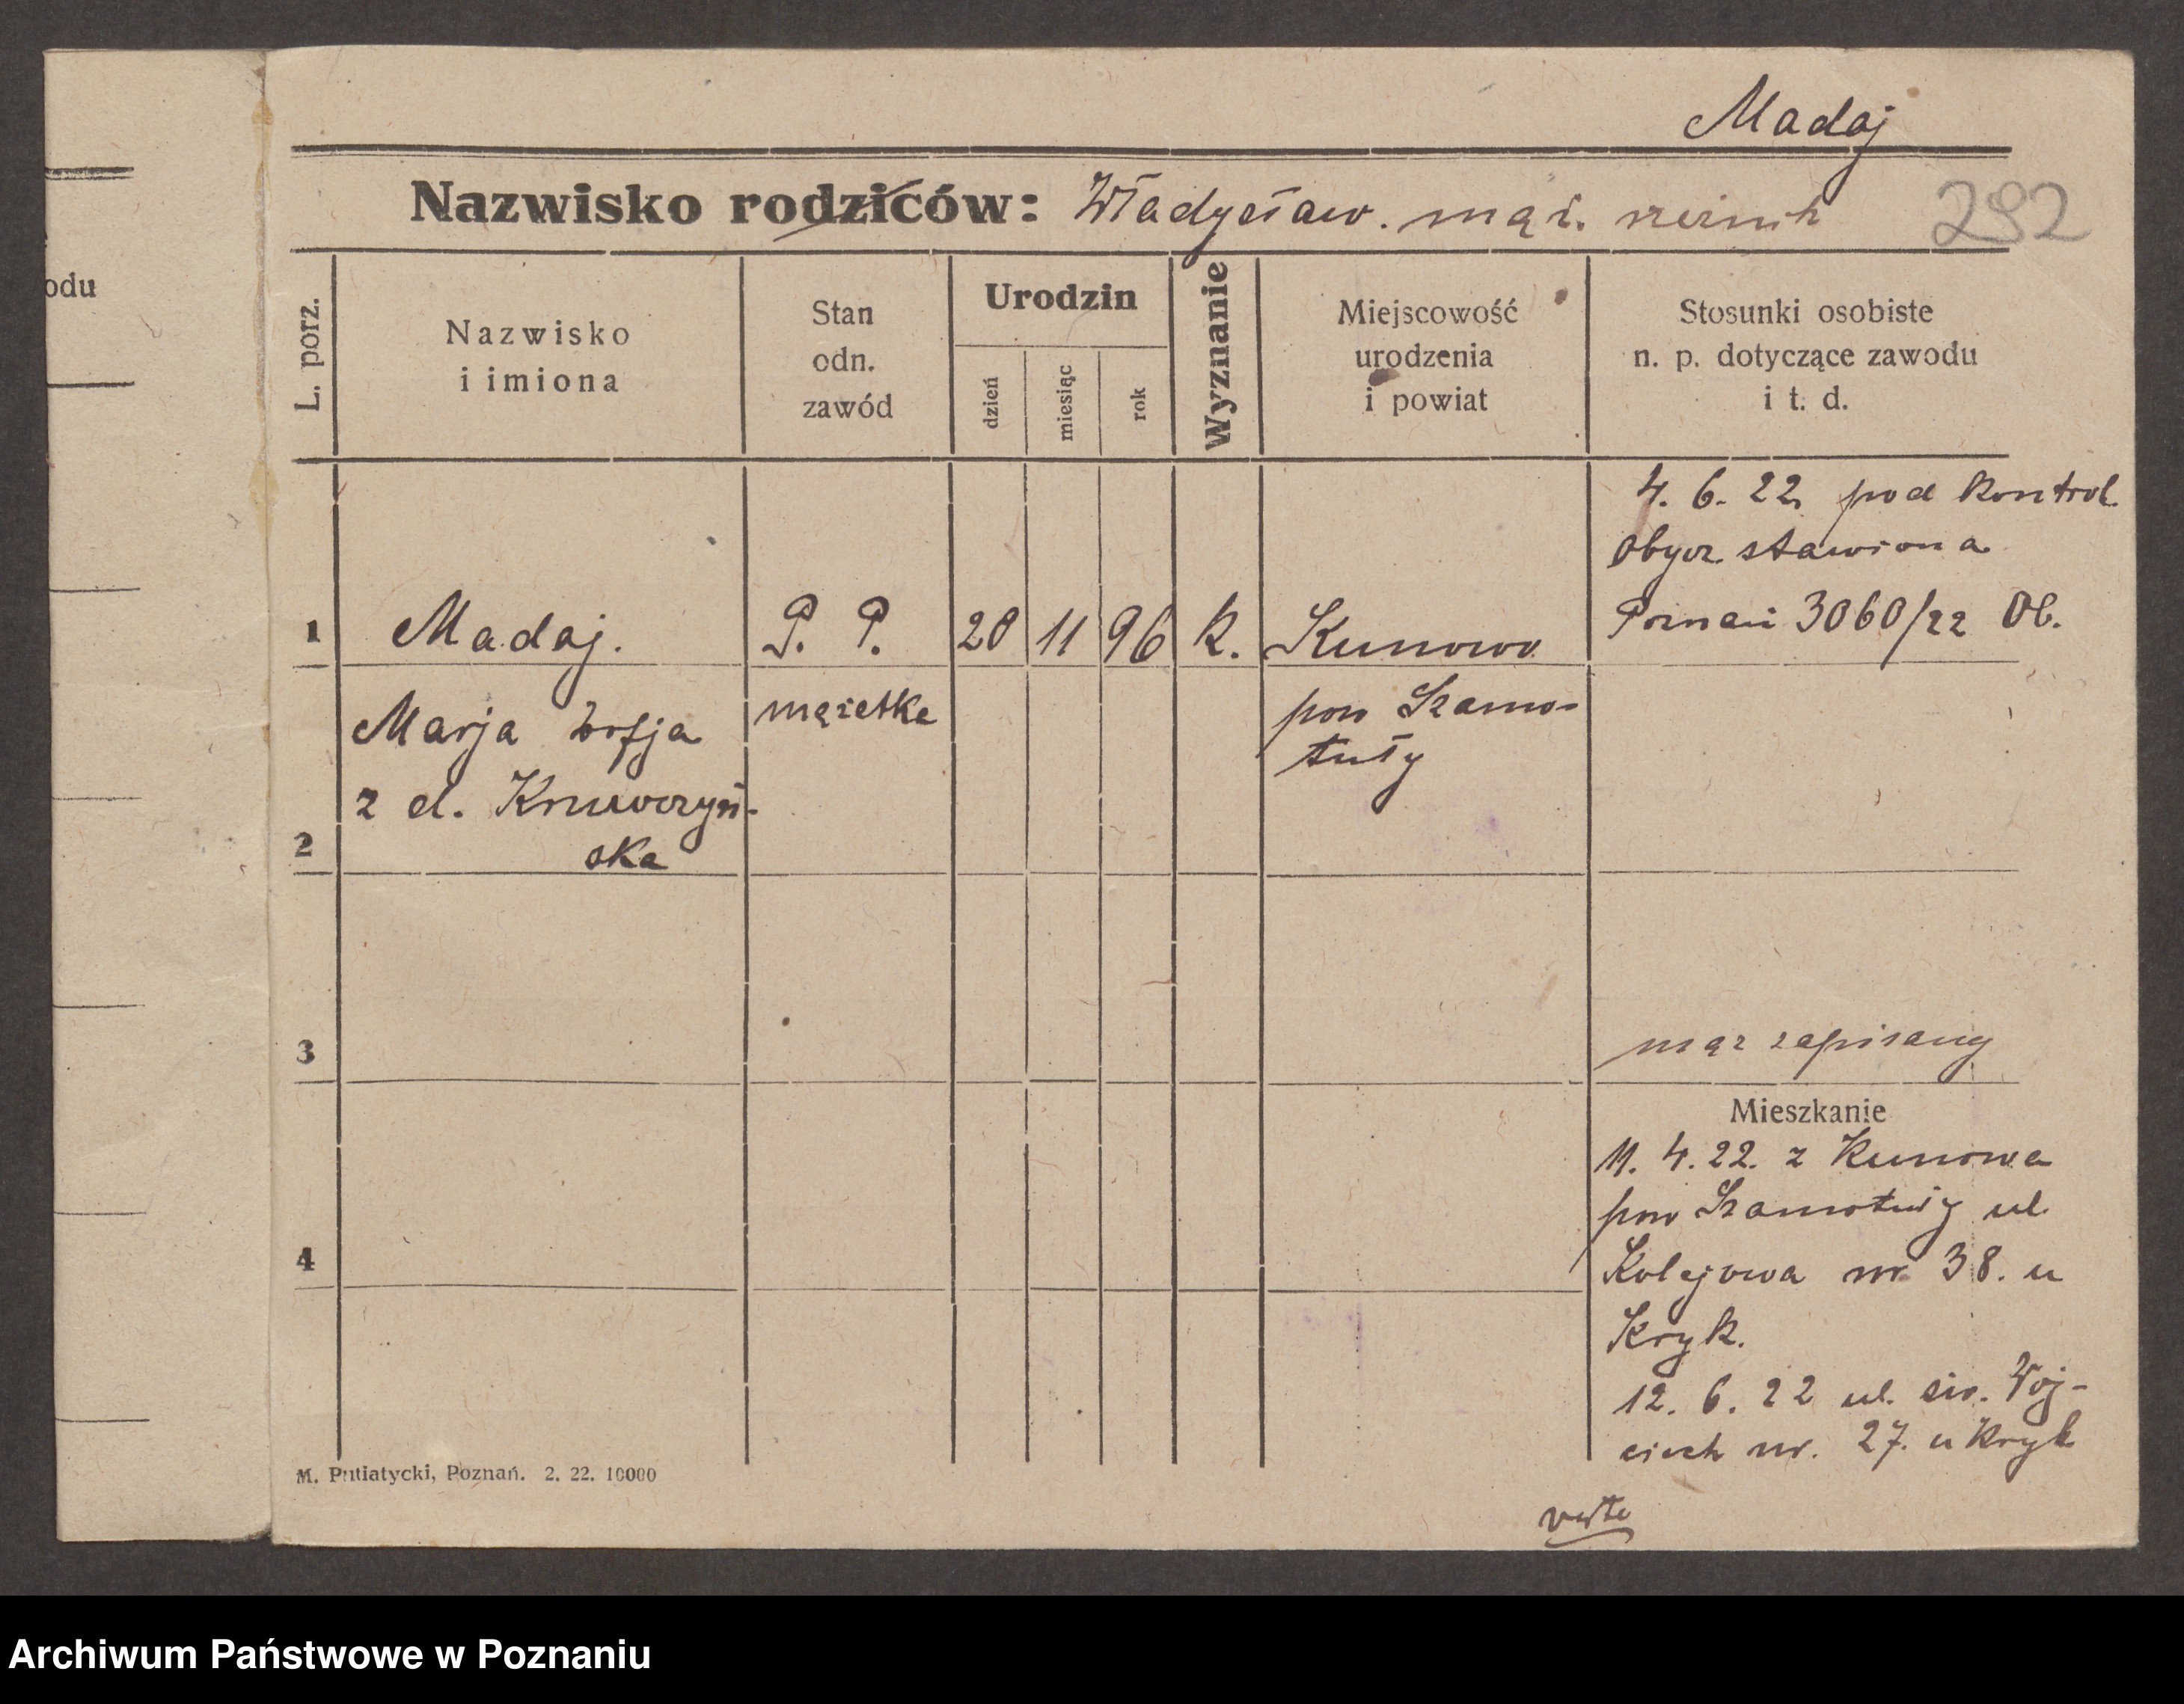 Madaj
Nazwisko rodziców: Władysław. mąż. rzeźnik
292
odu
L. porz.
Nazwisko
i imiona
Stan
odn.
zawód
Urodzin
dzień
miesiąc
rok
Wyznanie
Miejscowość
urodzenia
i powiat
Stosunki osobiste
n. p. dotyczące zawodu
i t. d.
4. 6. 22 pod kontrol.
obycz. stawiona
Poznań 3060/22 Ob.
1 Madaj. P. P. 20 11 96 k. Kunowo
Marja Zofja mężatka pow Szamo-
tuły
z d.
2 ska
3 mąż zapisany
Mieszkanie
11. 4. 22. z Kunowa
pow Szamotuły ul
4 Kolejowa nr 38. u
Kryk.
12. 6. 22 ul. św. Woj-
ciech nr. 27. u Kryk
M. Putiatycki, Poznań. 2. 22. 10000
verte
Archiwum Państwowe w Poznaniu